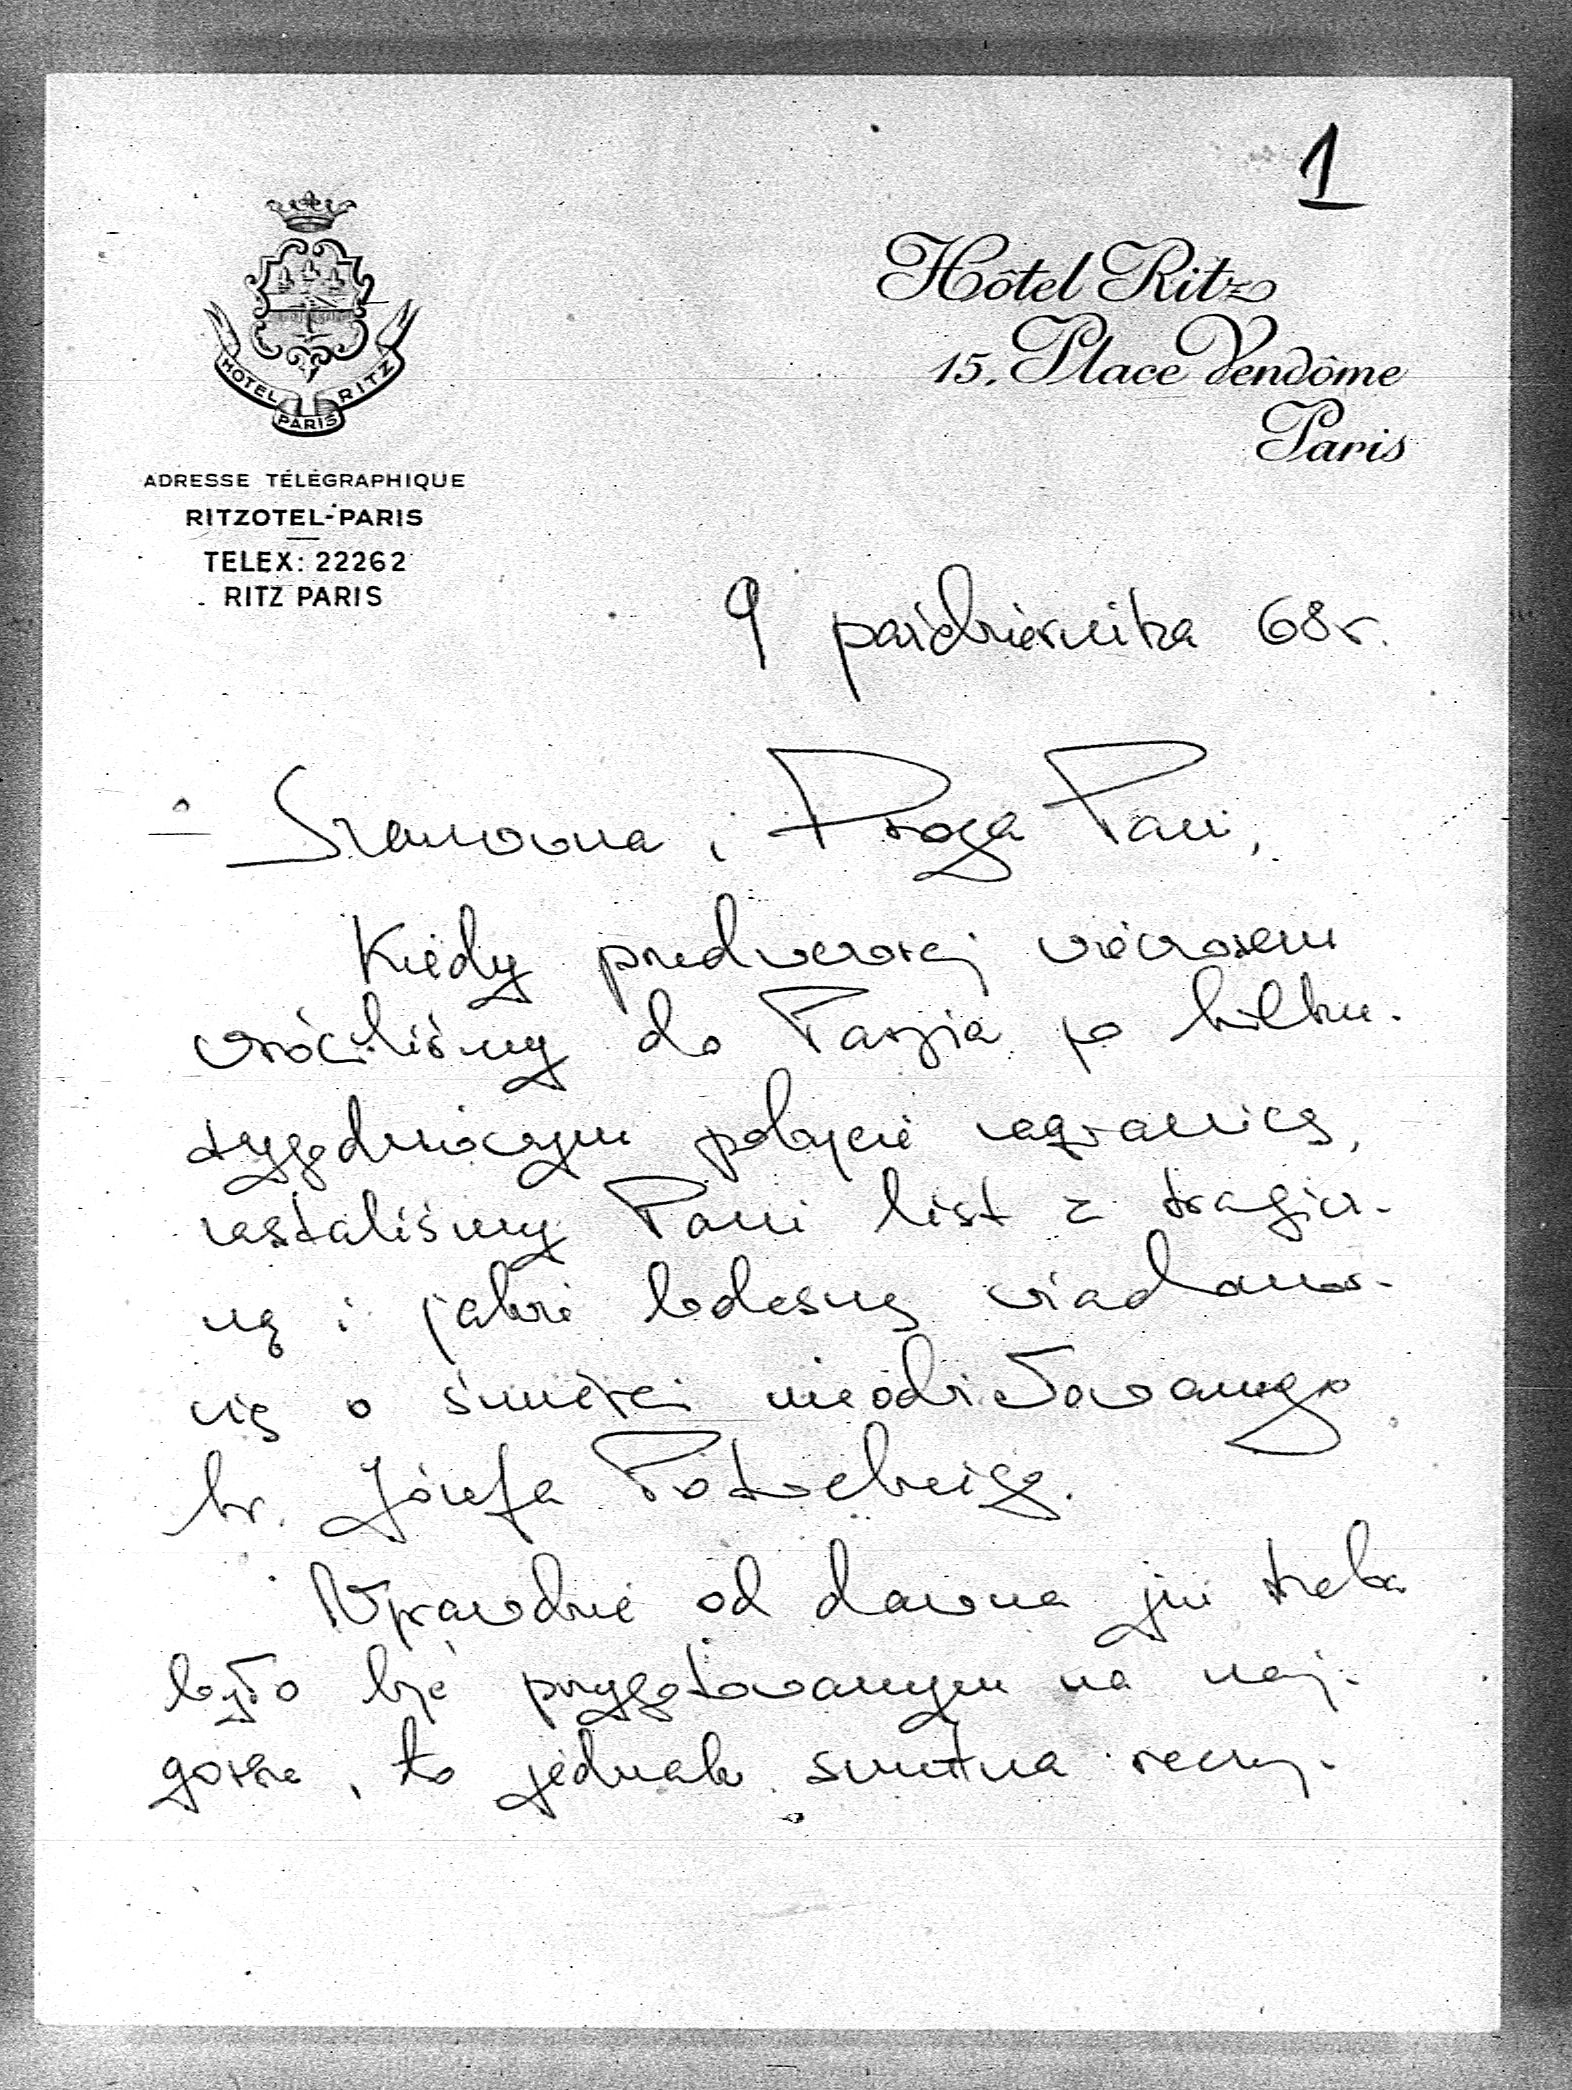 1
Hôtel Ritz
15, Place Vendôme
Paris
HOTEL RITZ
PARIS
ADRESSE TÉLÉGRAPHIQUE
RITZOTEL-PARIS
TELEX: 22262
RITZ PARIS
9 października 68 r.
Szanowna i Droga Pani,
Kiedy przedwczoraj wieczorem
wróciliśmy do Paryża po kilku-
tygodniowym pobycie zagranicą,
zastaliśmy Pani list z tragicz-
ną i jakże bolesną wiadomoś-
cią o śmierci nieodżałowanego
hr. Józefa Potockiego.
Wprawdzie od dawna już trzeba
było być przygotowanym na naj-
gorsze, to jednak smutna rzeczy-